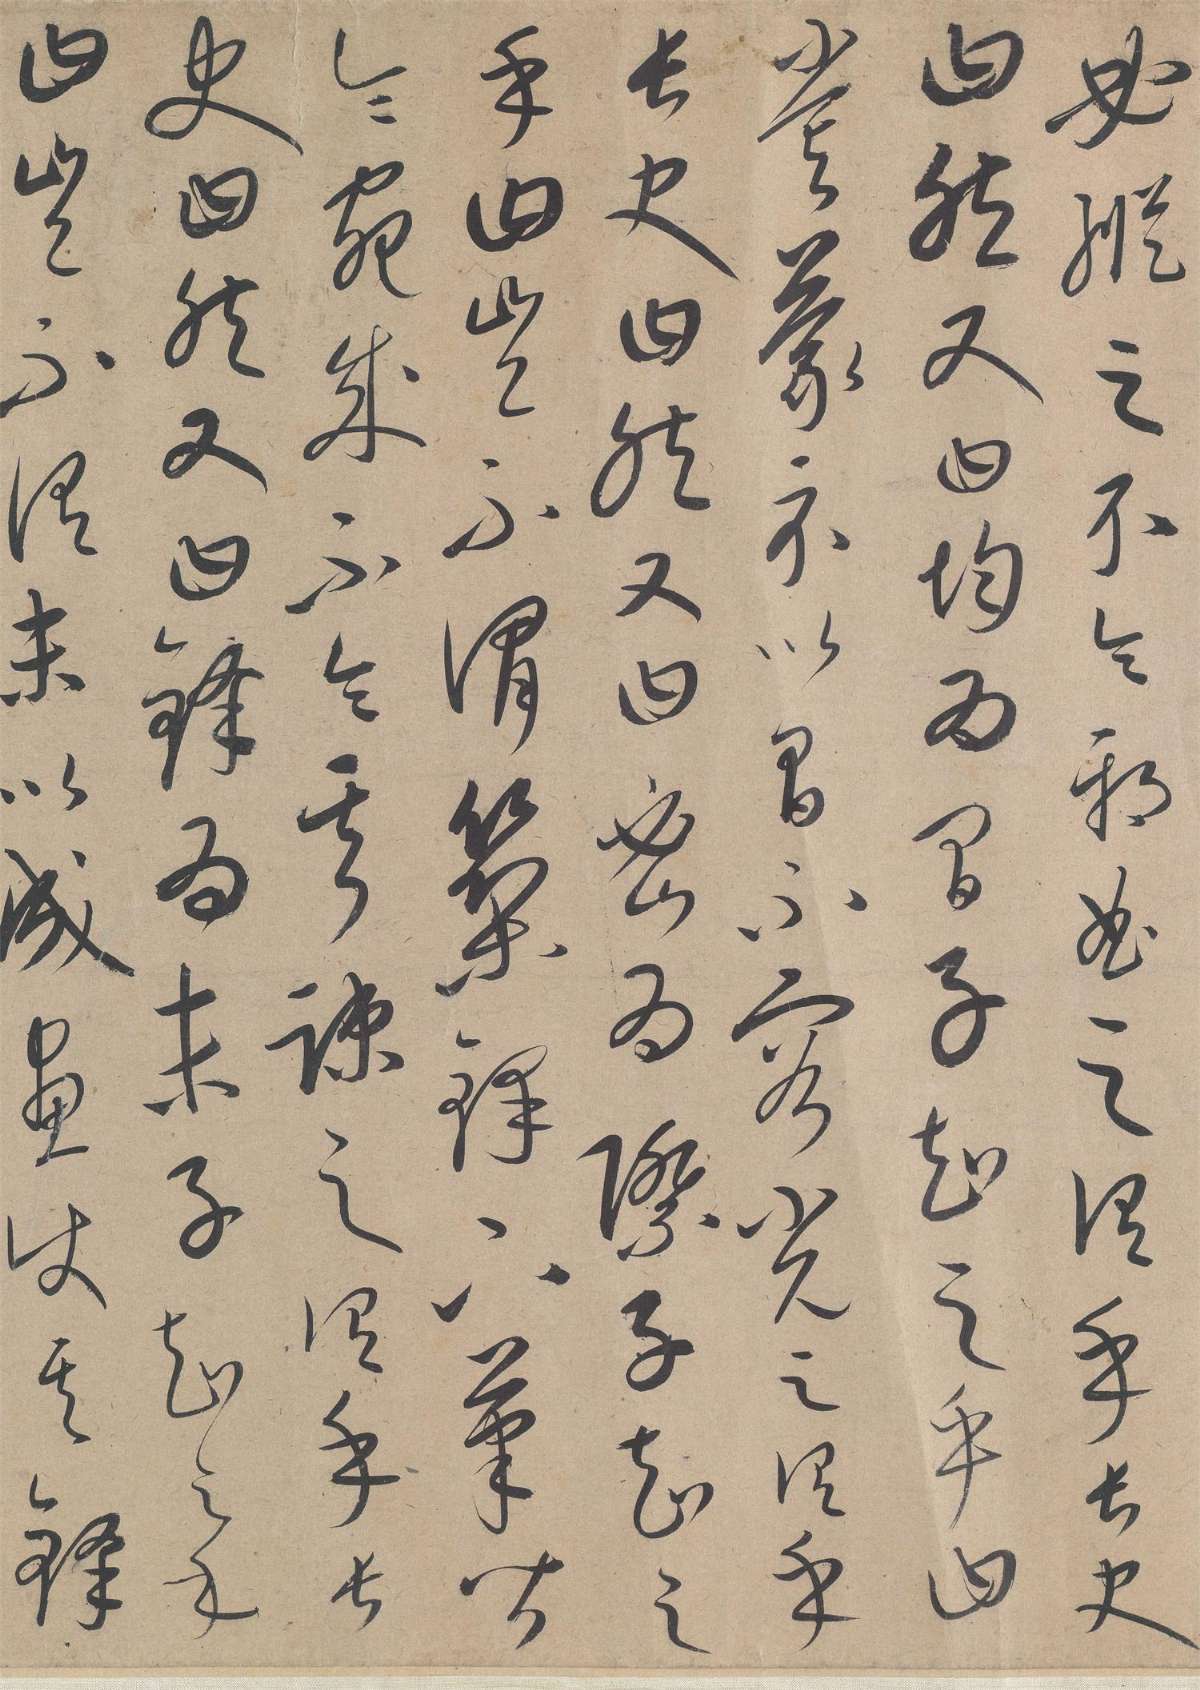 必縱之不令邪曲之謂乎長史
曰然又曰均為間子知之乎曰
嘗蒙示以間不容光之謂乎
長史曰然又曰密為際子知之
乎曰豈不謂築鋒下筆皆
令宛成不令其疎之謂乎長
史曰然又曰鋒為末子知之乎
曰豈不謂末以成畫使其鋒